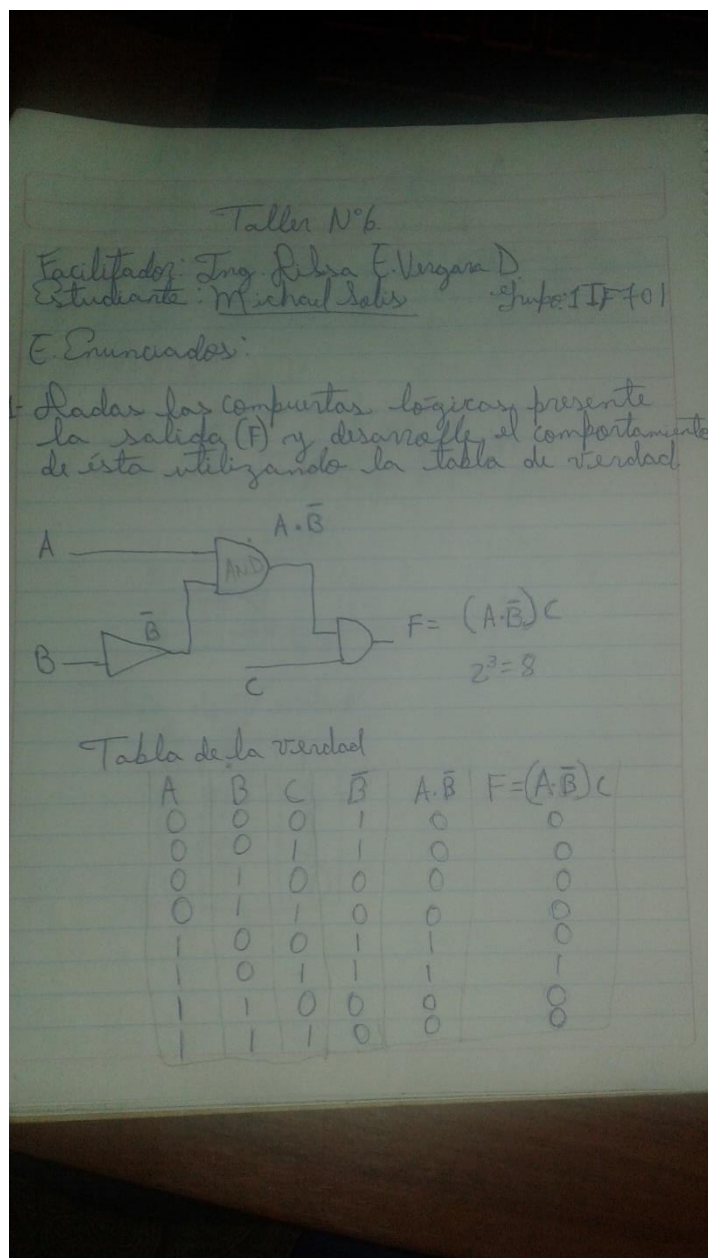 Taller N°6.
Facilitador: Ing. E. Vergara D.
Estudiante: Michael Solis Grupo: 1IF701
E. Enunciados:
1- Dadas las compuertas lógicas, presente
la salida (F) y desarrolle, el comportamiento
de ésta utilizando la tabla de verdad
A·B̄
A
AND
B̄
F= (A·B̄)C
B
2³=8
C
Tabla de la verdad
A B C B̄ A·B̄ F=(A·B̄)C
0 0 0 1 0 0
0 0 1 1 0 0
0 1 0 0 0 0
0 1 1 0 0 0
1 0 0 1 1 0
1 0 1 1 1 1
1 1 0 0 0 0
1 1 1 0 0 0